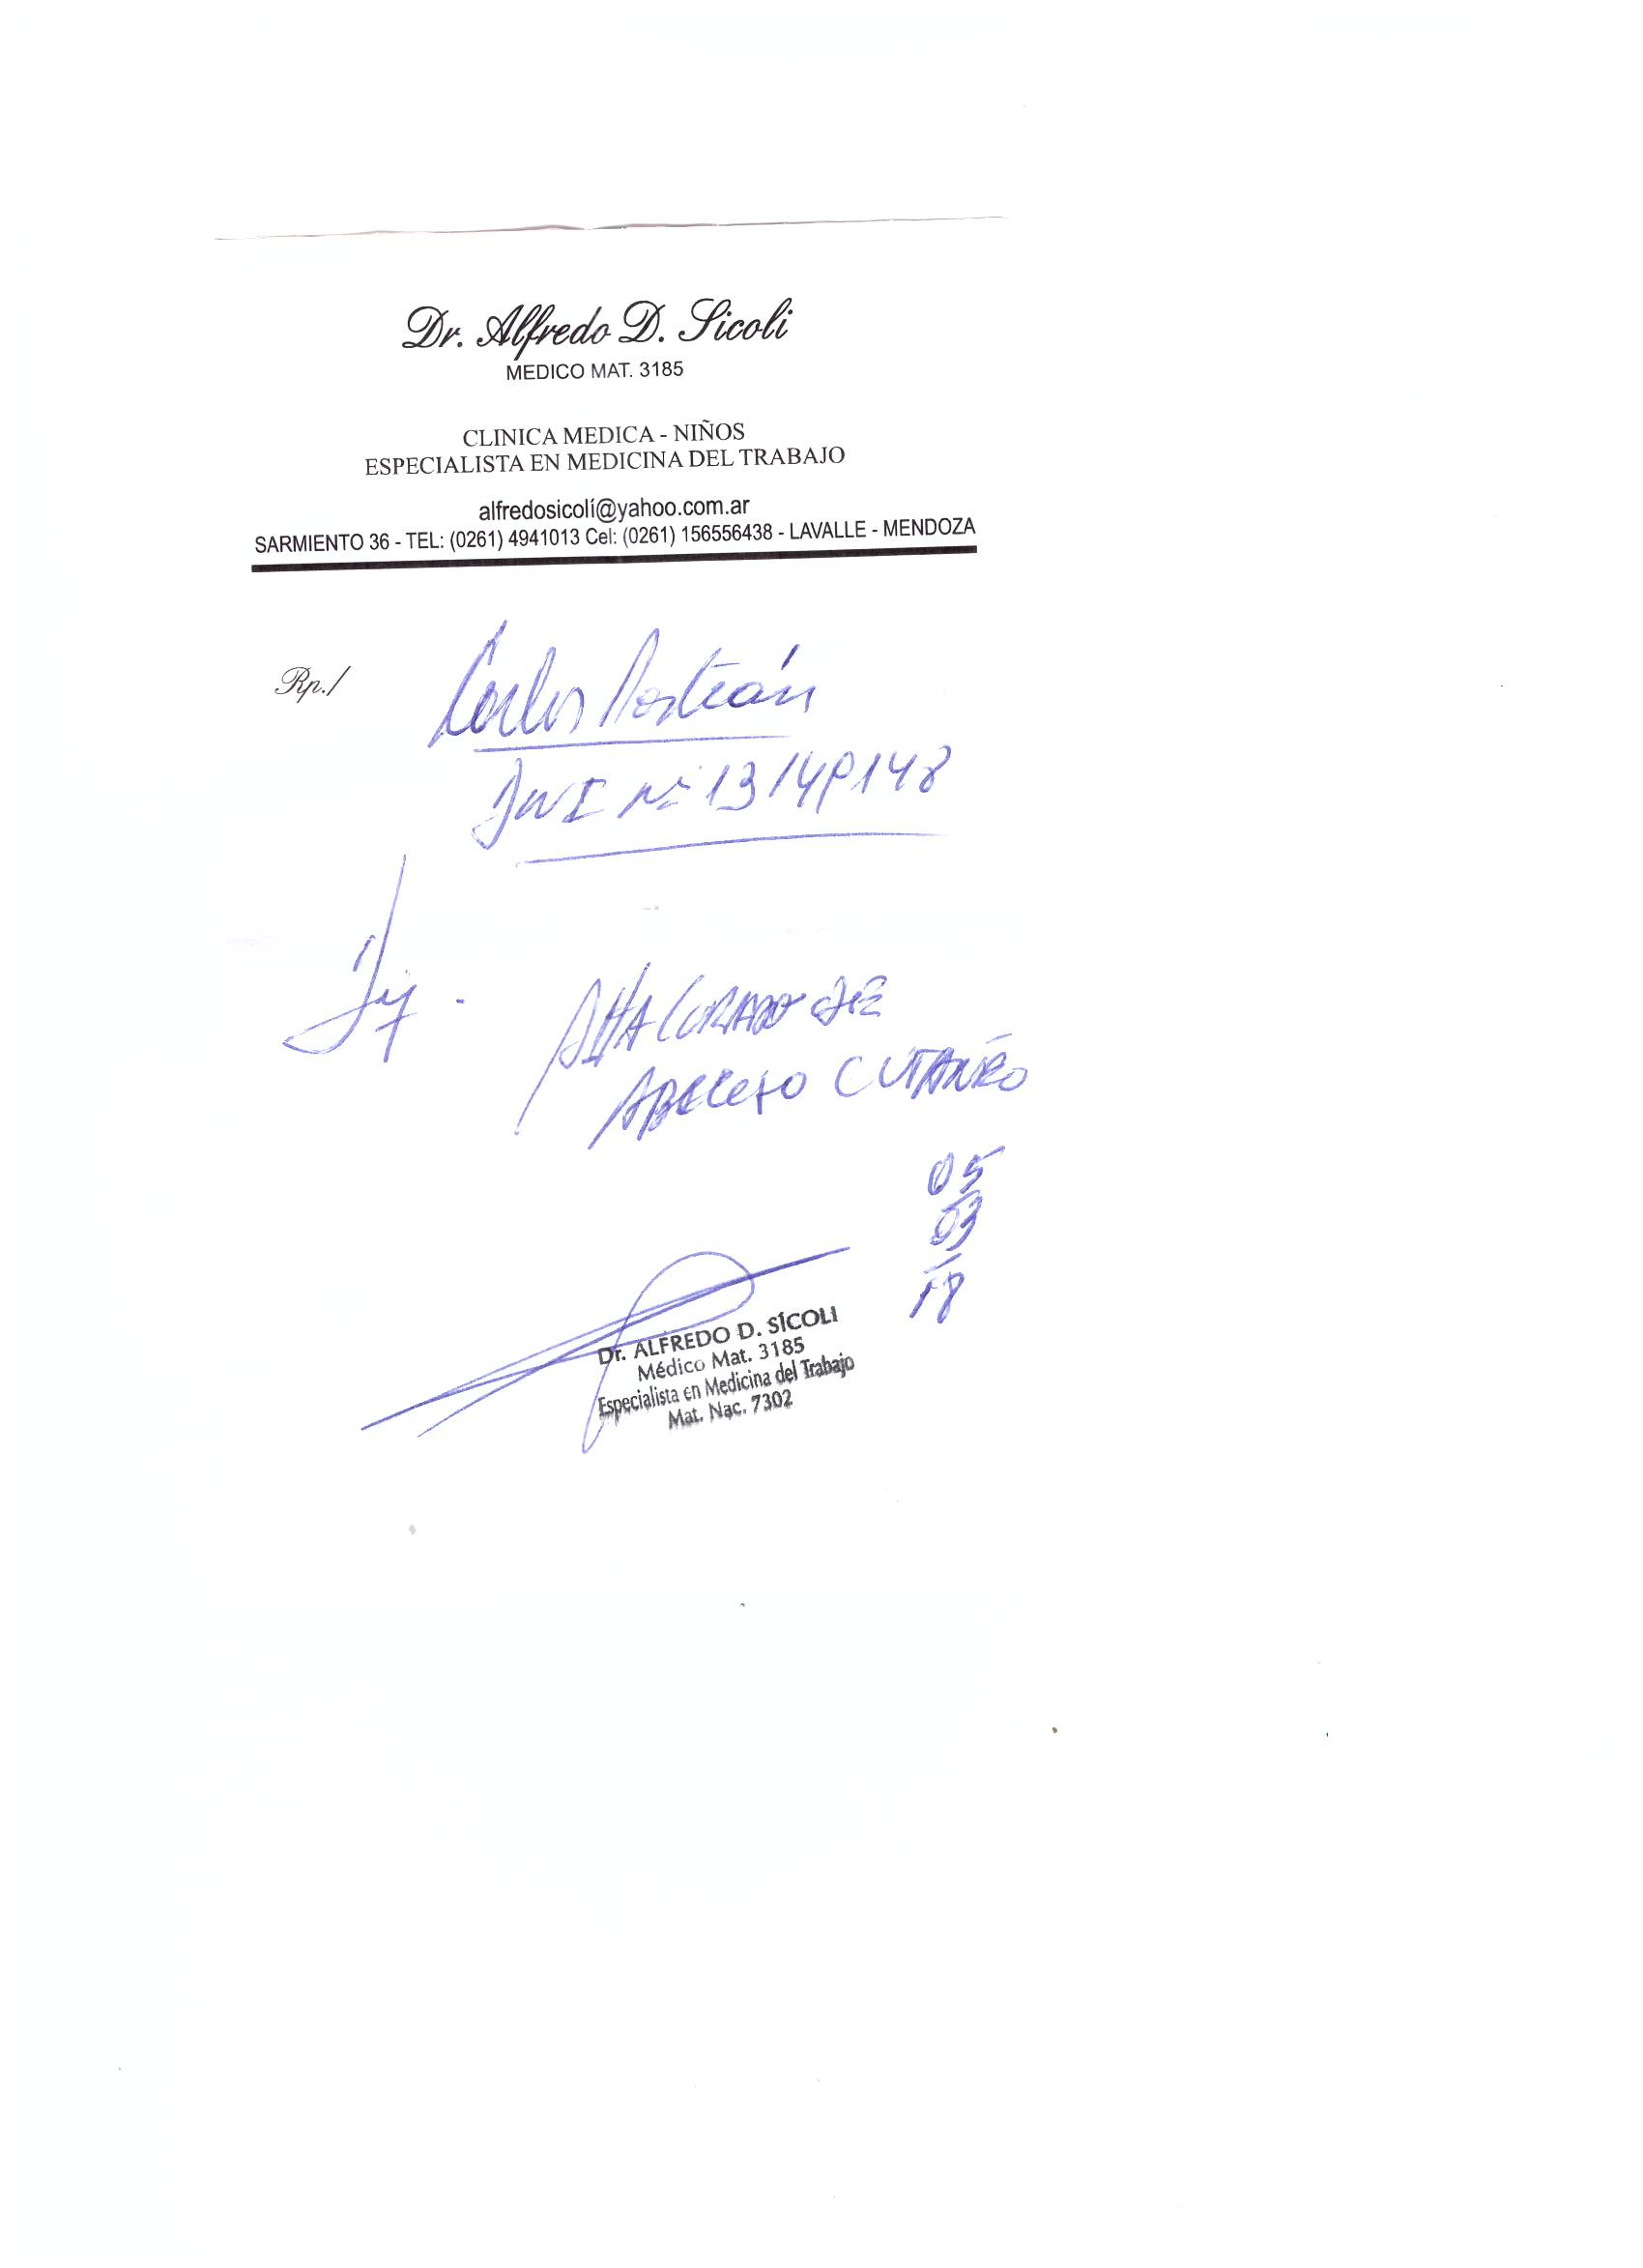 Dr. Alfredo D. Sicoli
MEDICO MAT. 3185
CLINICA MEDICA - NIÑOS
ESPECIALISTA EN MEDICINA DEL TRABAJO
alfredosicoli@yahoo.com.ar
SARMIENTO 36 - TEL: (0261) 4941013 Cel: (0261) 156556438 - LAVALLE - MENDOZA
Rp./
Carlos
DNI Nº 13149148
ALTA CURADO DE
ABSCESO CUTANEO
05
03
18
Dr. ALFREDO D. SÍCOLI
Médico Mat. 3185
Especialista en Medicina del Trabajo
Mat. Nac. 7302